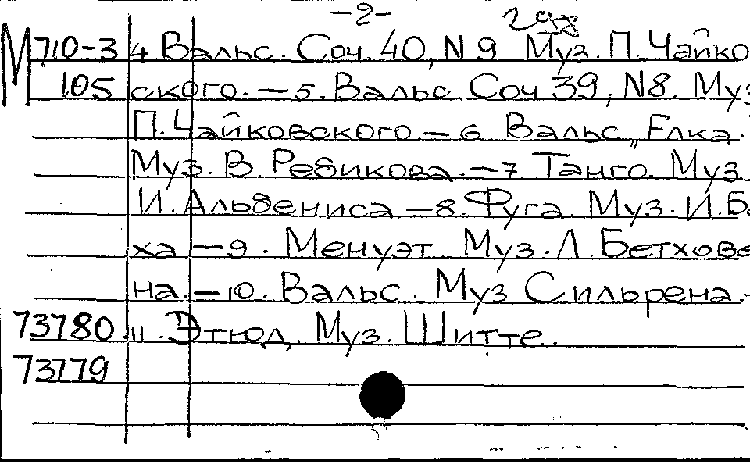 -2-
М 710-3 4 Вальс. Соч. 40, N 9 Муз. П. Чайко
105 ского. – 5. Вальс Соч 39, N8. Муз
П. Чайковского – 6 Вальс „Елка.
Муз. В. Ребикова. – 7 Танго. Муз
И. Альбениса – 8. Фуга. Муз. И. Б
ха – 9. Менуэт Муз. Л. Бетхове
на. – 10. Вальс. Муз Сильрена. –
73780 11. Этюд, Муз. Шитте.
73779